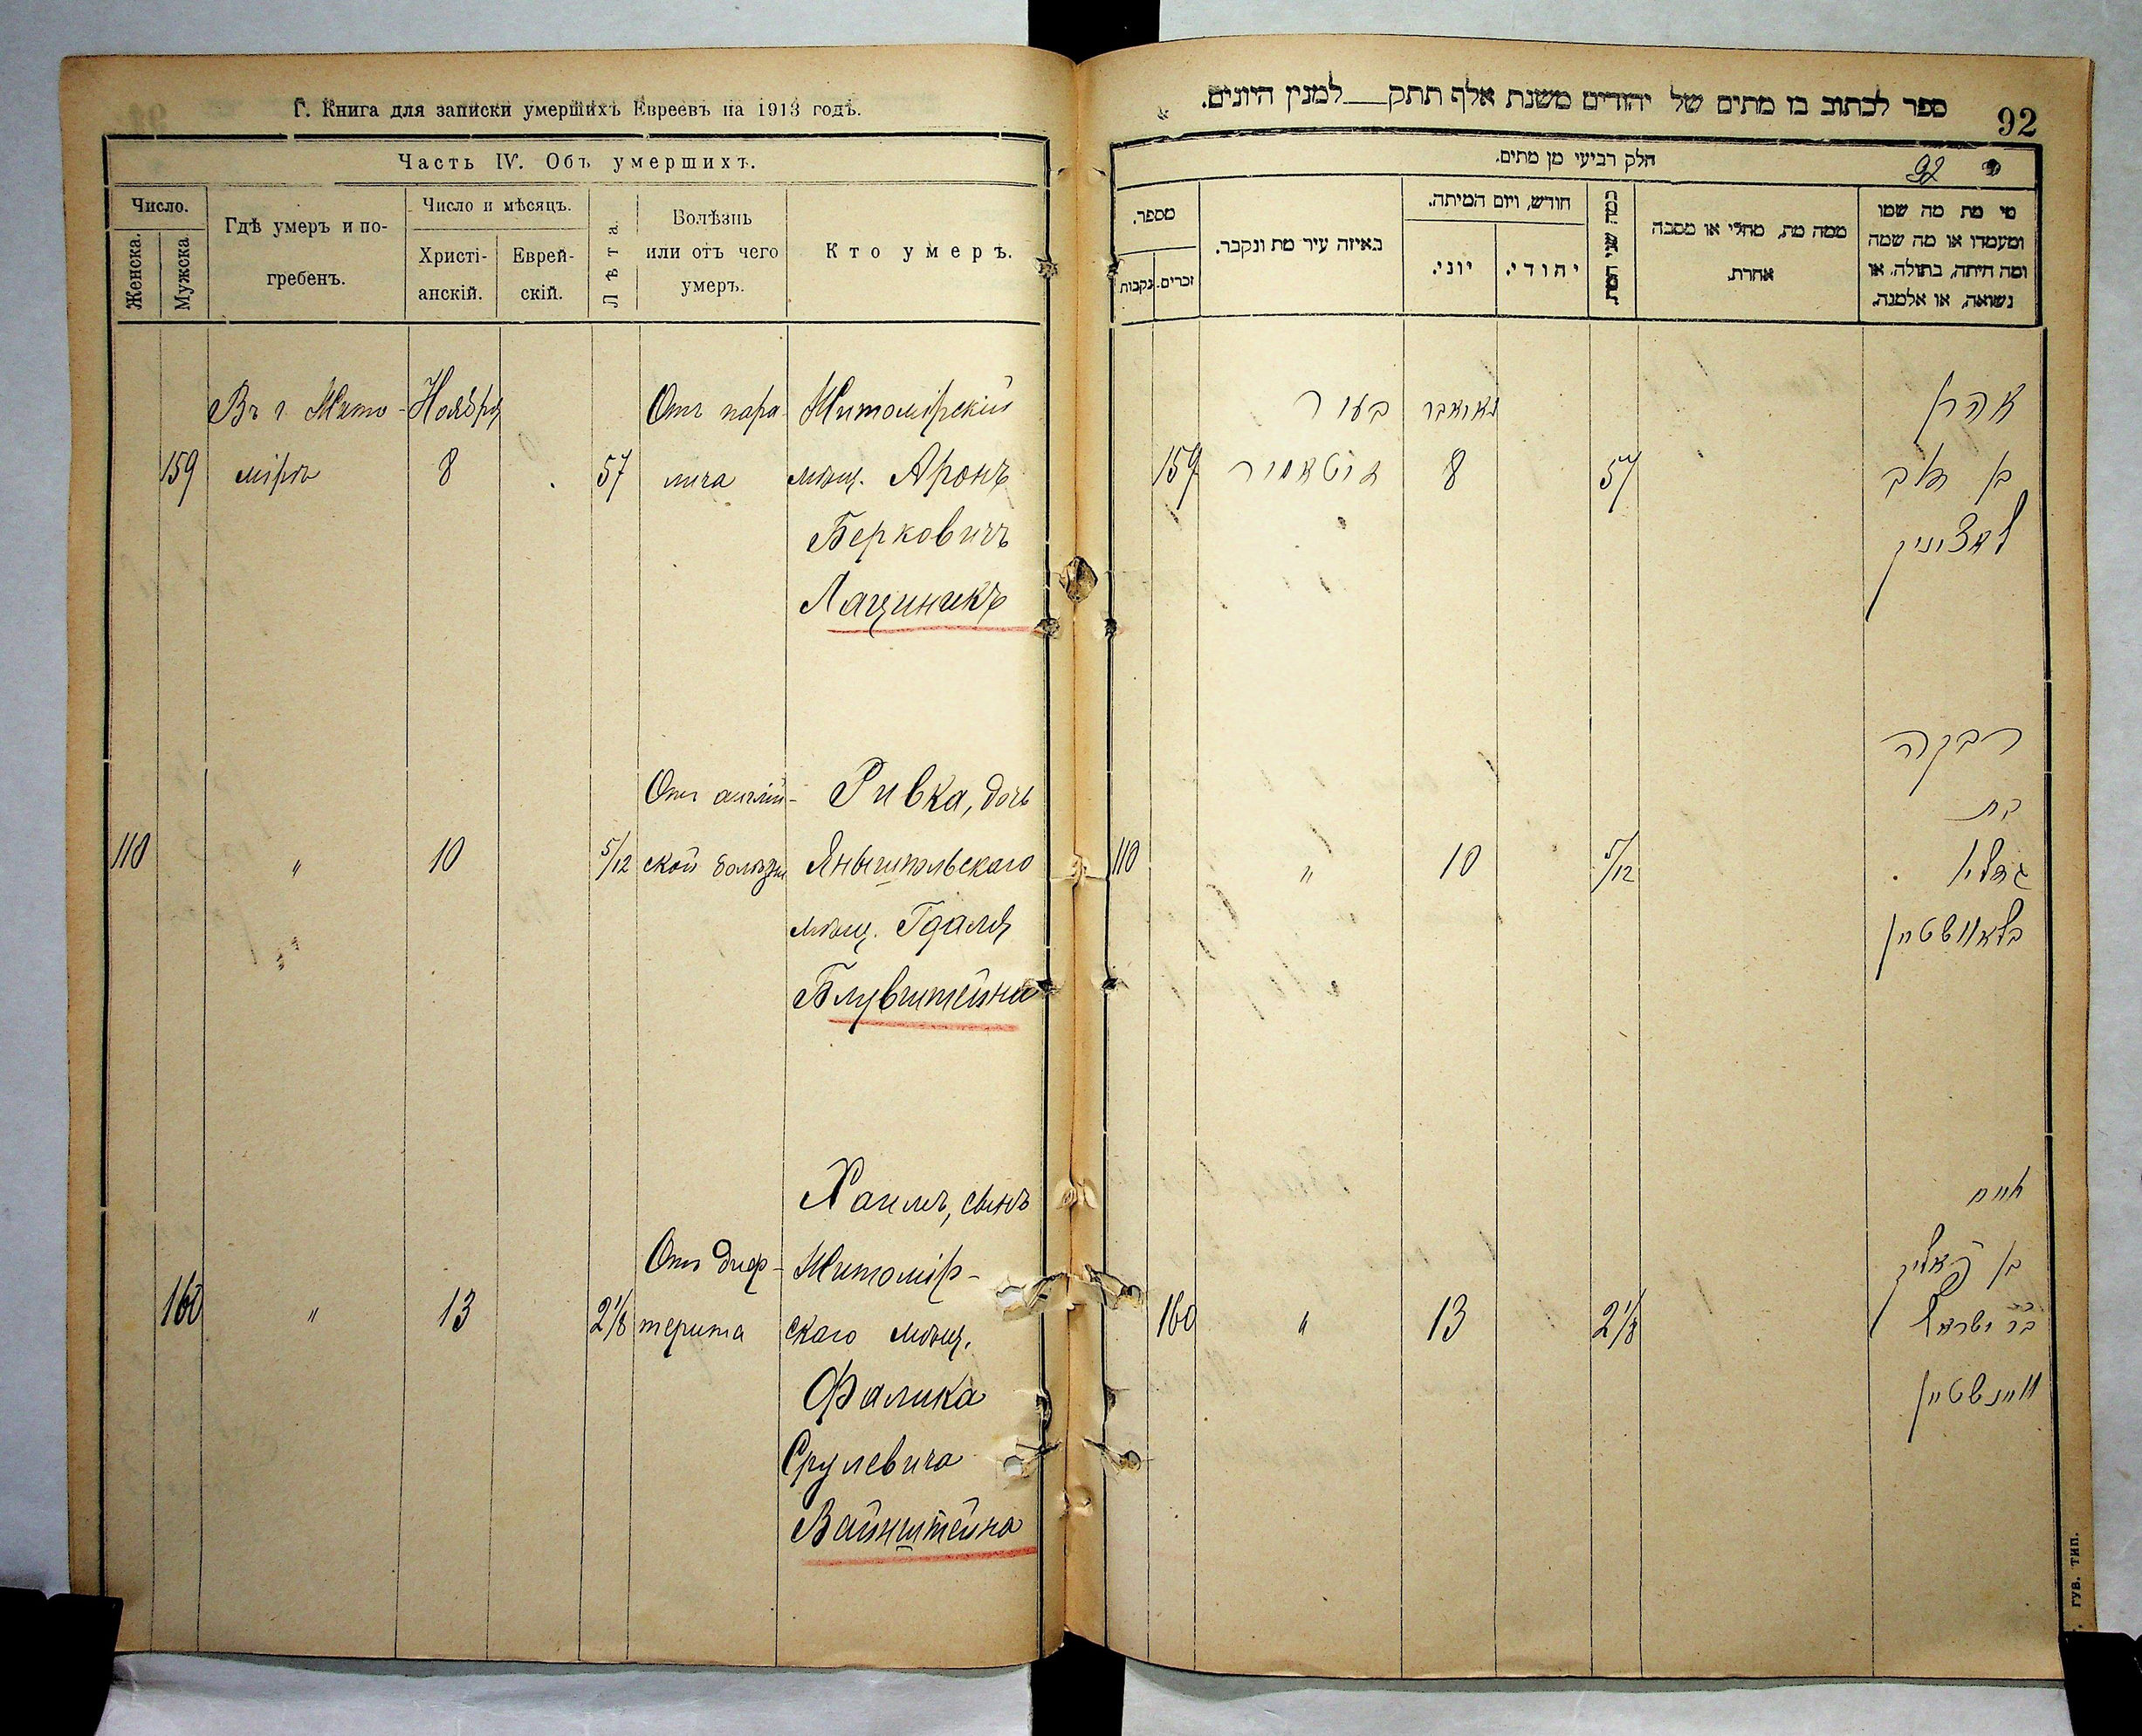 Г. Книга для записки умершихъ Евреевъ на 1913 годъ.
Часть IV. Объ умершихъ.
Число.
Женска.
Мужска
Гдѣ умеръ и по-
гребенъ.
Число и мѣсяцъ.
Христі-
анскій.
Еврей-
скій.
Лѣта.
Болѣзнь
или отъ чего
умеръ.
Кто умеръ.
Въ г. Жито-
Ноября
Отъ пара-
Житомірскій
159
мірѣ
8
57
лича
мѣщ. Аронъ
Берковичъ
Лащиникъ
Отъ англій-
Ривка, дочь
110
"
10
5/12
ской болѣзни
Янымтльскаго
мѣщ. Гдаля
Блувштейна
Хаимъ, сынъ
Отъ диф-
Житомір-
160
"
13
2 1/8
терита
скаго мѣщ.
Фалика
Срулевича
Вайнштейна
ספר לכתוב בו מתים של יהודים משנת אלף תתק למנין היונים.
92
חלק רביעי מן מתים.
92
מספר.
נקבות
זכרים.
באיזה עיר מת ונקבר.
חודש, ויום המיתה.
יוני.
יהודי.
כמה שני המת.
ממה מת, מחלי או מסבה
אחרת.
מי מת מה שמו
ומעמדו או מה שמה
ומה היתה, בתולה, או
נשואה, או אלמנה.
בעיר
נאיאבר
אהרן
159
זיטאמיר
8
57
בן דוב
לאצינניק
רבקה
בת
110
"
10
5/12
גדליה
בלאוושטיין
חיים
בן פאליק
160
"
13
2 1/8
בר ישראל
וויינשטיין
ГУБ. ТИП.